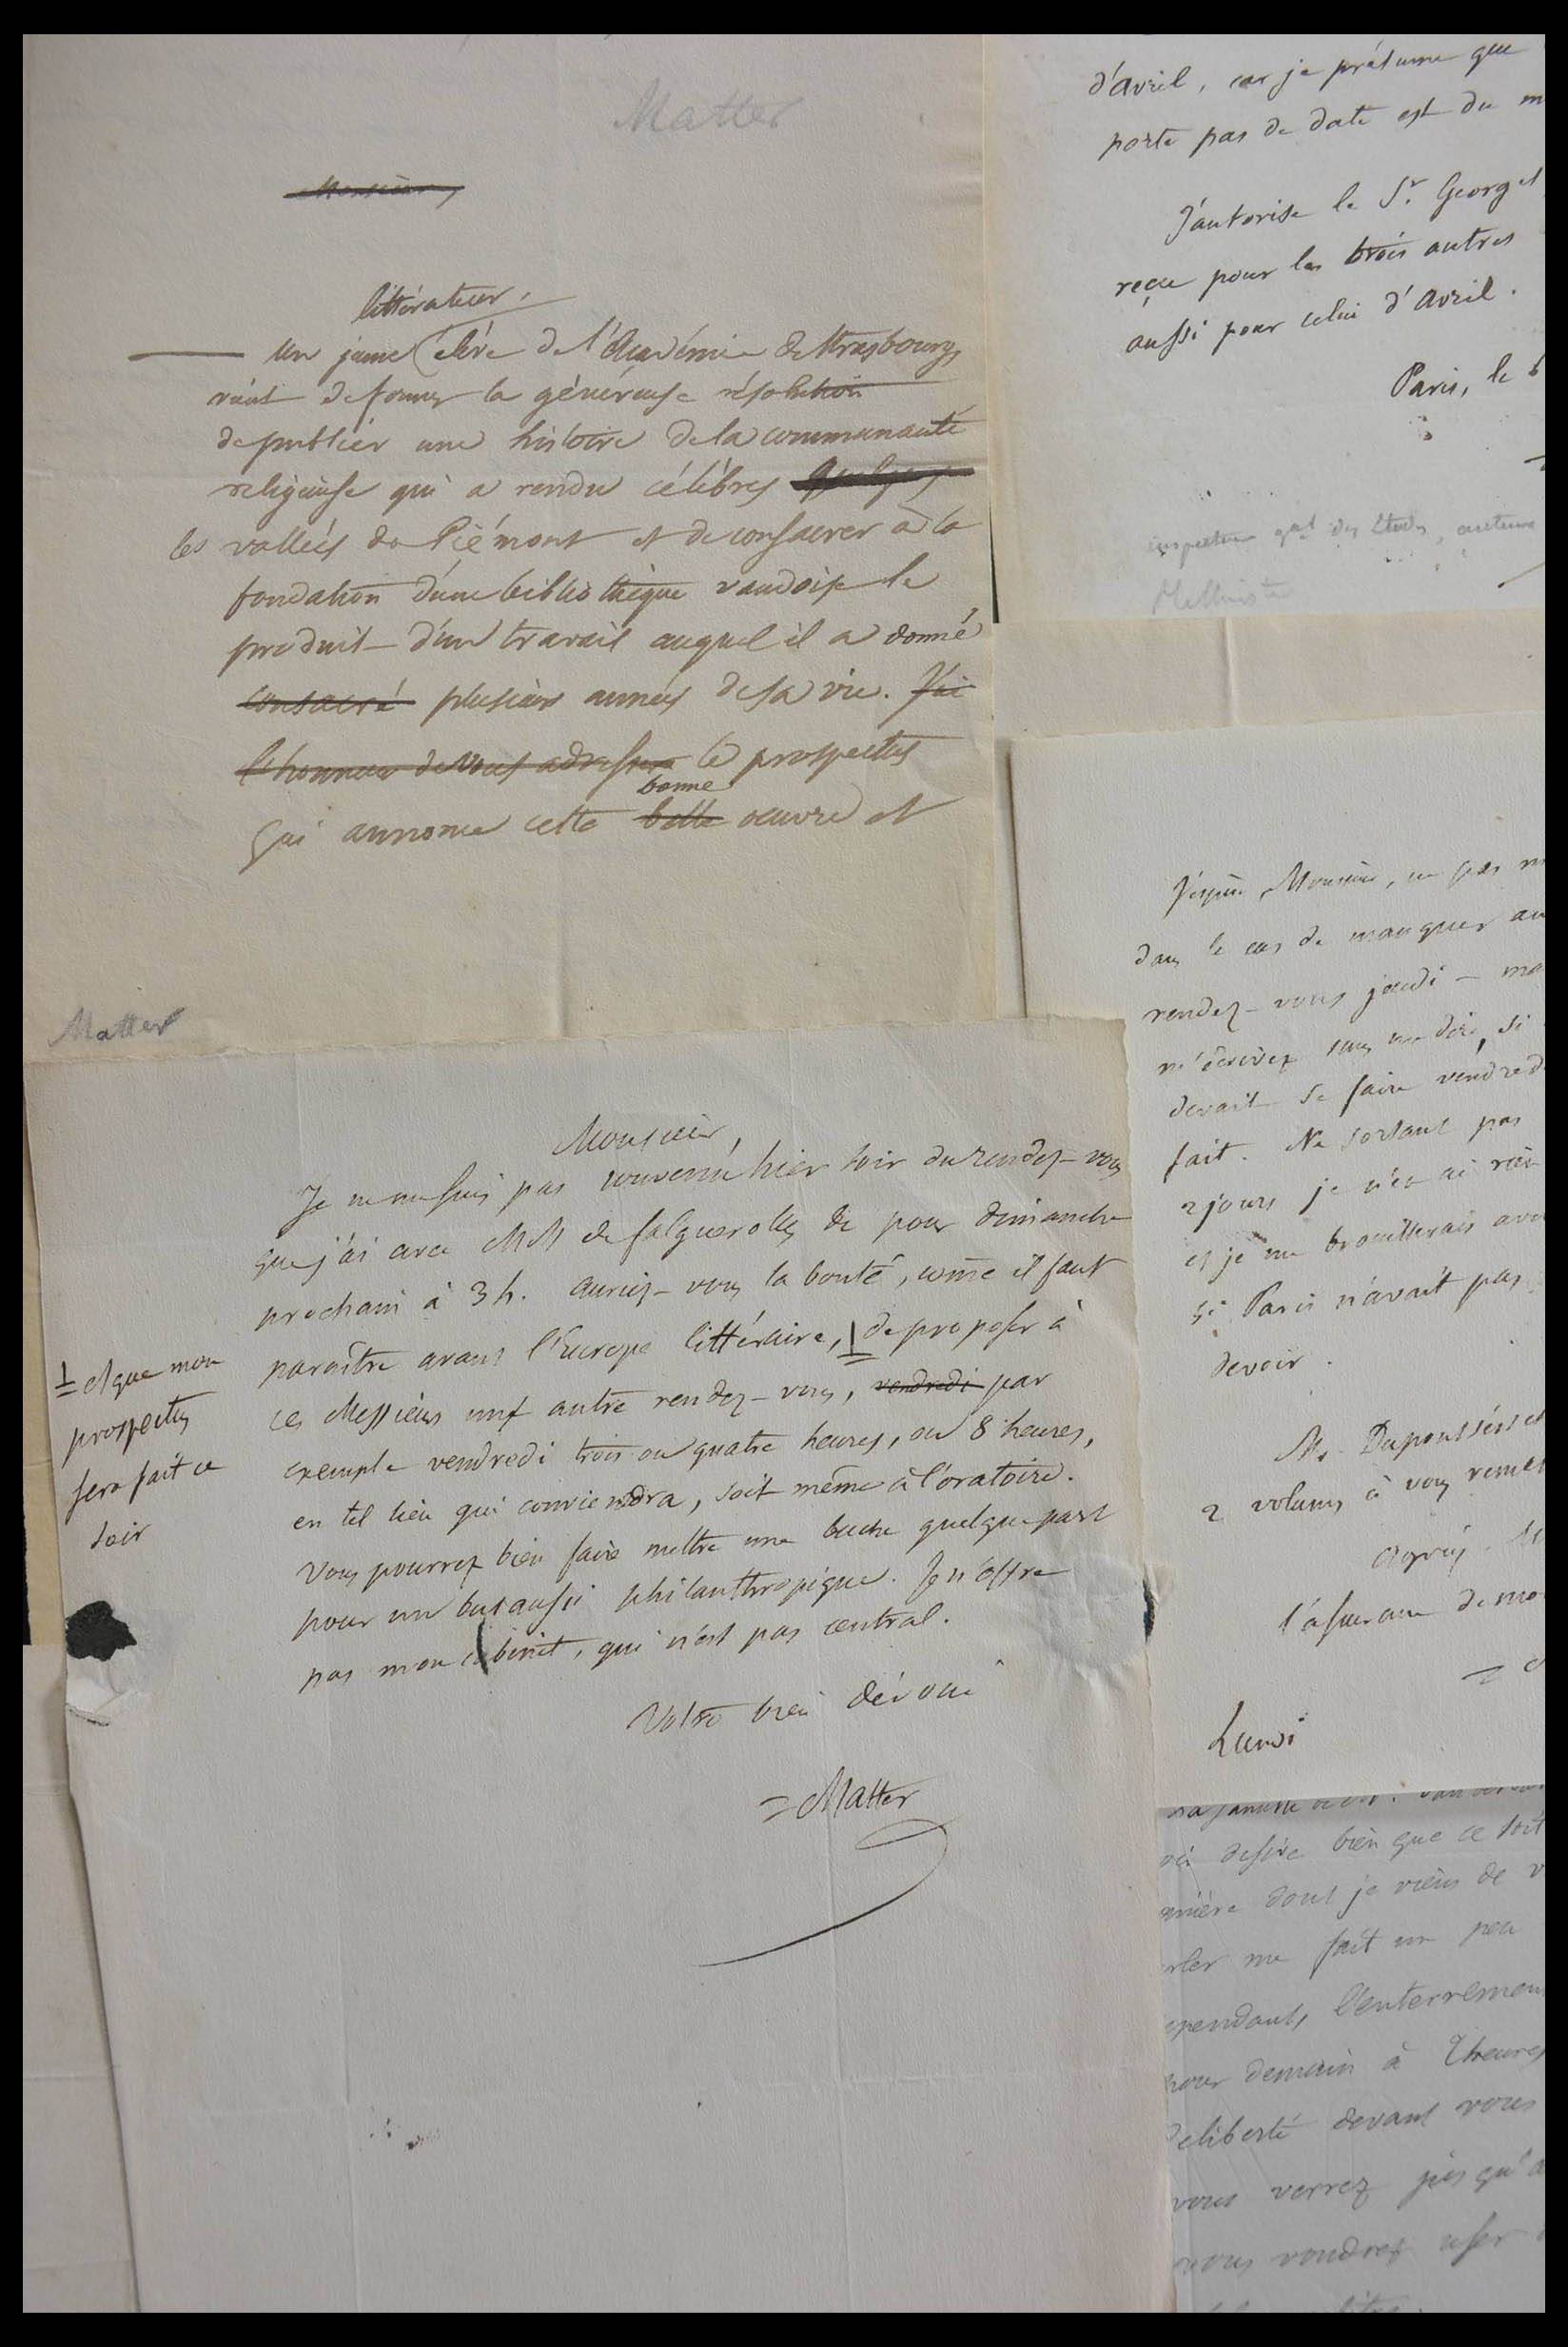 Matter
Monsieur,
littérateur,
Un jeune élève de l'Académie de Strasbourg
vient de former la généreuse résolution
de publier une histoire de la communauté
religieuse qui a rendu célèbres quelques
les vallées de Piémont et de consacrer à la
fondation d'une bibliothèque vaudoise le
produit d'un travail auquel il a donné
consacré plusieurs années de sa vie. J'ai
l'honneur de vous adresser le prospectus
bonne
qui annonce cette belle oeuvre et
Matter
Monsieur,
Je ne me suis pas souvenu hier soir du rendez-vous
que j'ai avec MM de Falguerolles &c pour dimanche
prochain à 3 h. Auriez-vous la bonté, come il faut
paraître avant l'Europe littéraire, de proposer à
ces Messieurs un autre rendez-vous, vendredi par
exemple vendredi trois ou quatre heures, ou 8 heures,
en tel lieu qui conviendra, soit même à l'oratoire.
Vous pourrez bien faire mettre une buche quelque part
pour un but aussi philanthropique. Je n'offre
pas mon cabinet, qui n'est pas central.
et que mon
prospectus
sera fait ce
soir
Votre bien dévoué
Matter
d'avril, car je présume que
porte pas de date est du m
J'autorise le Sr. Georget
reçu pour les trois autres
aussi pour celui d'Avril.
Paris, le 6
inspecteur gal des études, auteur
J'espère, Monsieur, ne pas m
dans le cas de manquer au
rendez-vous jeudi - ma
m'écrivez sans me dire, si
devait se faire vendred
fait. Ne sortant pas
2 jours je n'en ai rien
et je me brouillerais ave
si Paris n'avait pas
devoir.
2 volumes à vous remet
Agréez. M
l'assurance de mo
Lundi
desire bien que ce soit
dont je viens de v
rler me fait un peu
ependant, l'enterremen
pour demain à 7 heures
liberté devant vous
vous verrez jusqu'à
vous voudrez user